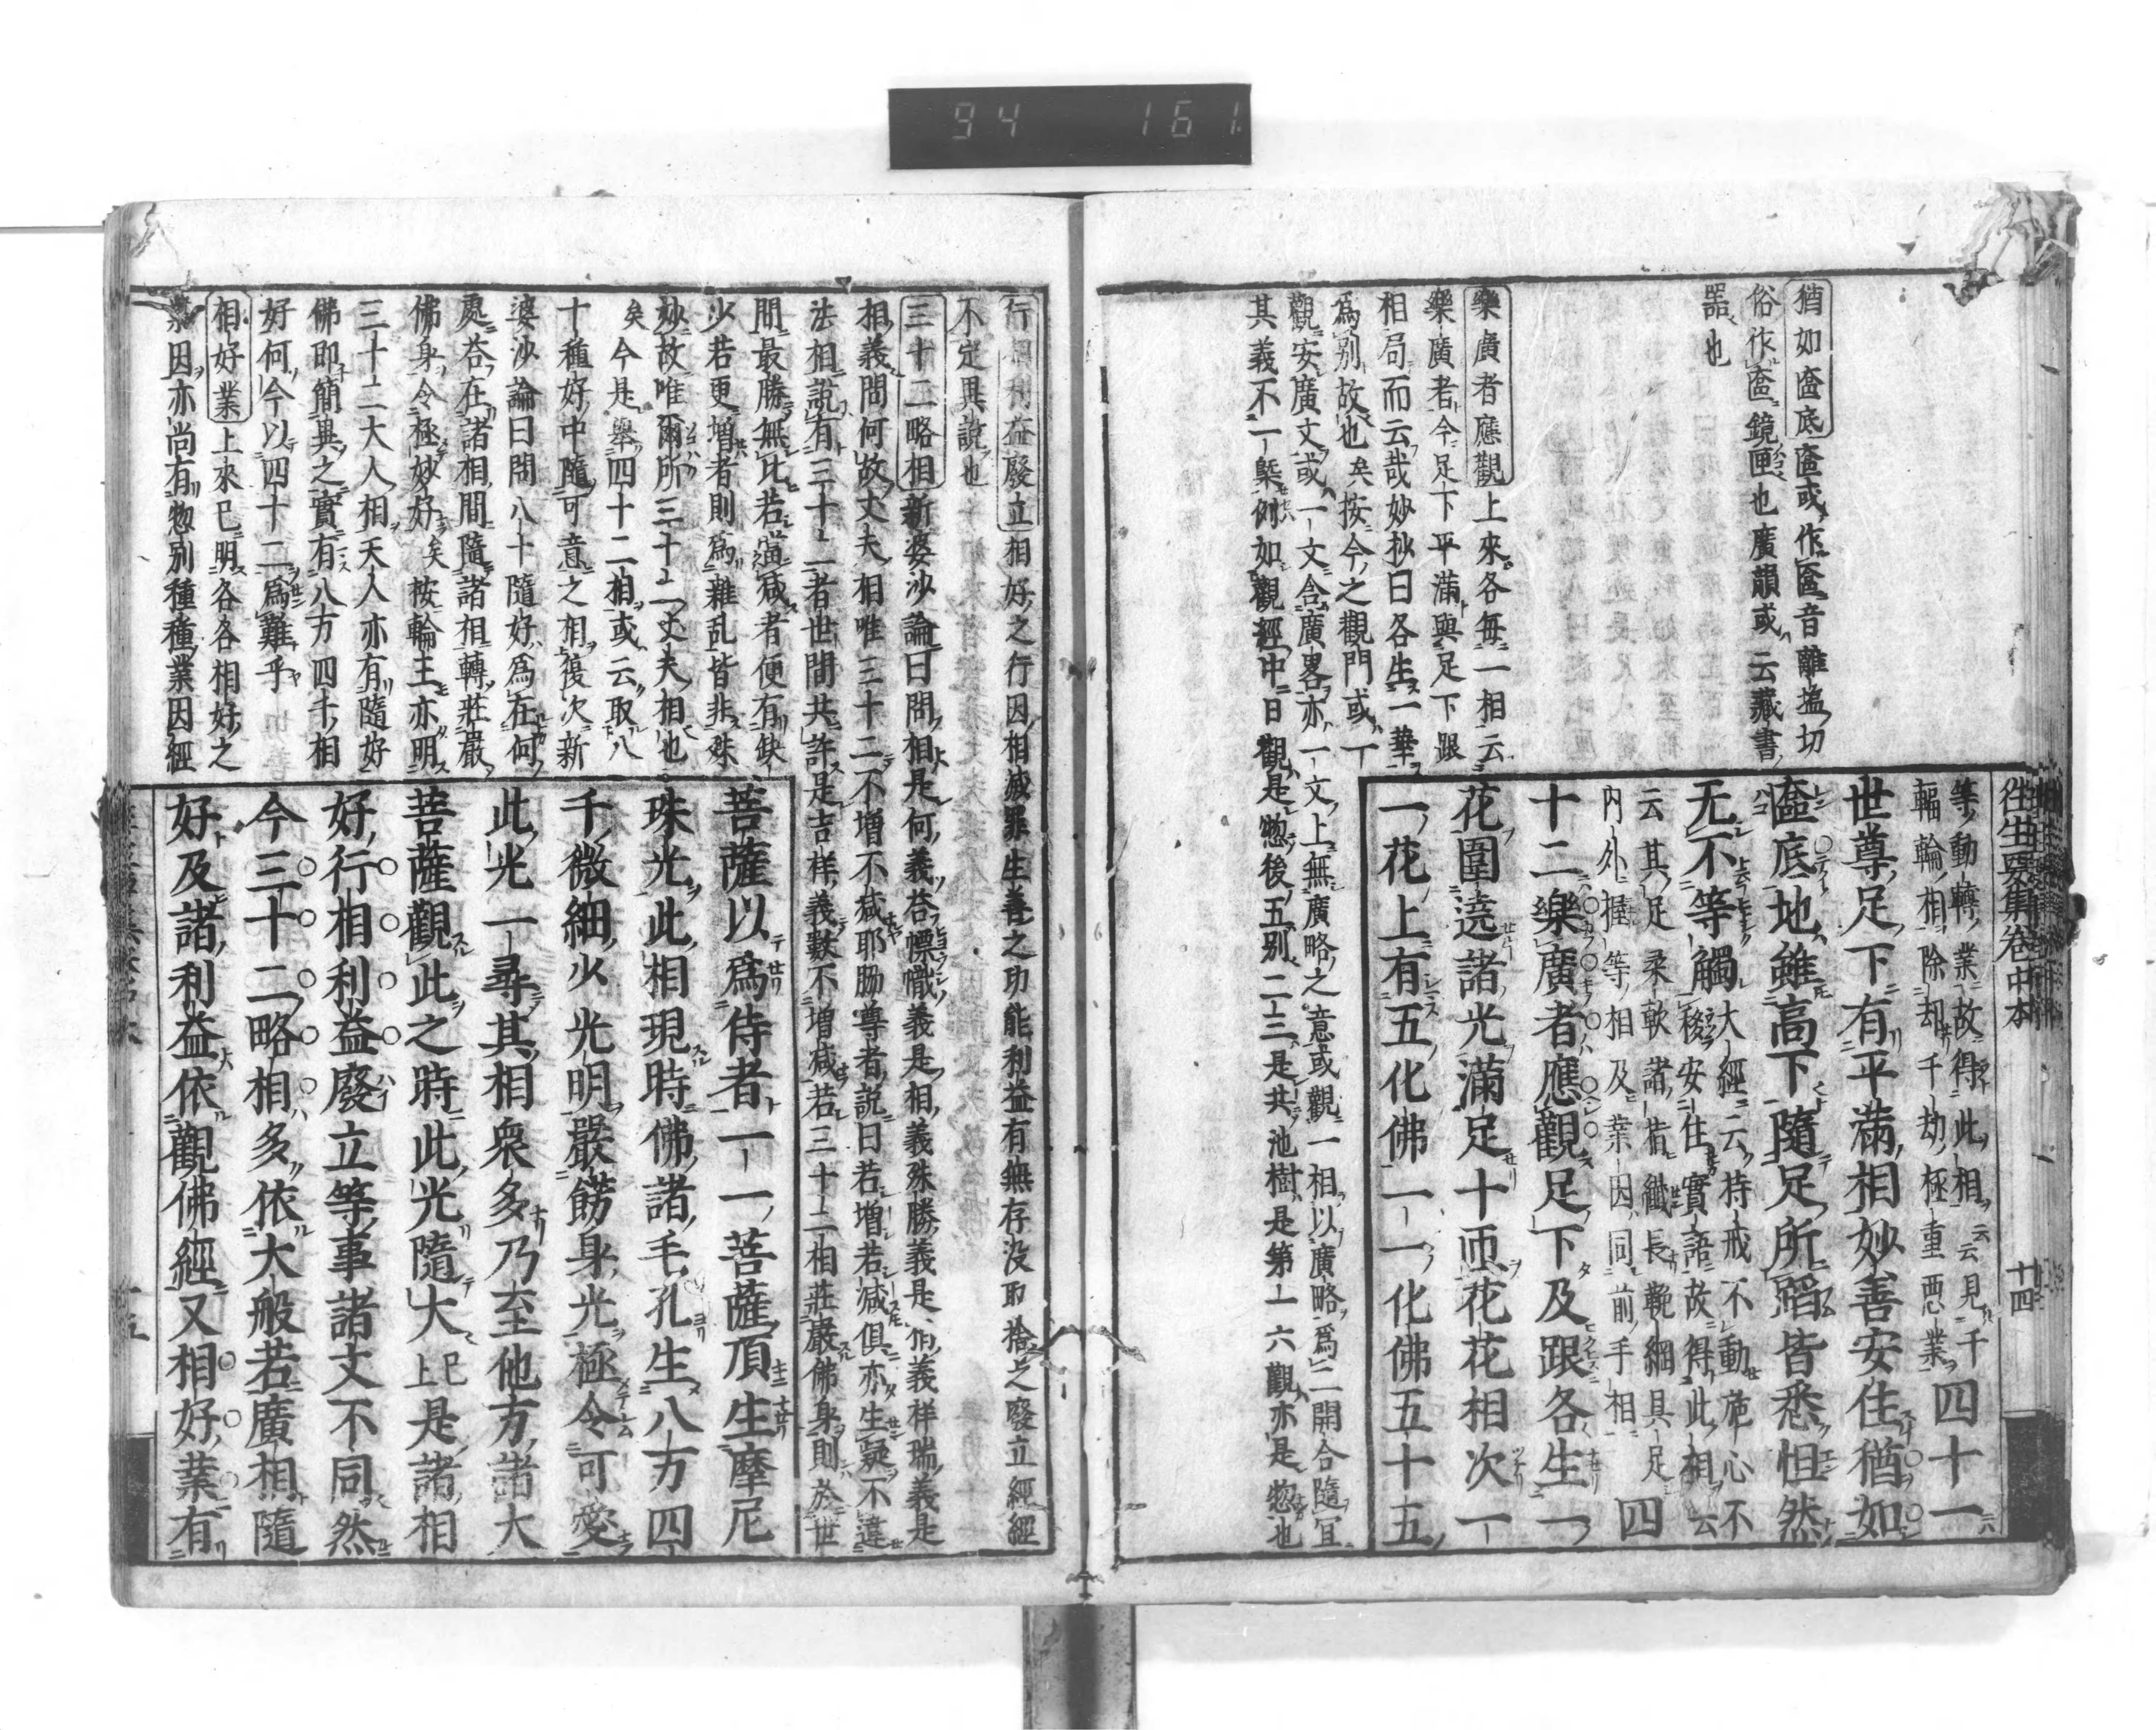 94 161
往生要集卷中本
十四
猶如奩底奩或作匳音離塩切
俗作奩鏡匣也廣韻或云藏書
器也
樂廣者應觀上來各每一相云
樂廣者今足下平滿與足下跟
相局而云哉妙抄曰各生一華
爲別故也矣按今之觀門或丁
觀安廣文或一文含廣畧亦一文上無廣略之意或觀一相以廣略爲二開合隨宜
其義不一槩例如觀經中日觀是惣後五別二三是共池樹是第十六觀亦是惣也
等動轉業故得此相云云見千
輻輪相除却千劫極重惡業
四十一
世尊足下有平滿相妙善安住猶如
奩底地雖高下隨足所蹈皆悉怛然
无不等觸
大經云持戒不動施心不
移安住實語故得此相云
云其足柔軟諸指纖長鞔網具足
内外握等相及業因同前手相
四
十二樂廣者應觀足下及跟各生一
花圍遶諸光滿足十匝花花相次一
一花上有五化佛一一化佛五十五
行相利益廢立相好之行因相滅罪生善之功能利益有無存没取捨之廢立經經
不定異說也
三十二略相新婆沙論曰問相是何義荅幖幟義是相義殊勝義是相義祥瑞義是
相義問何故丈夫相唯三十二不增不減耶脇尊者說曰若增若減俱亦生疑不違
法相說有三十二者世間共許是吉祥義數不增減若三十二相莊嚴佛身則於世
間最勝無比若當減者便有缺
少若更增者則爲雜乱皆非殊
妙故唯爾所三十二丈夫相也
矣今是舉四十二相或云取八
十種好中隨可意之相復次新
婆沙論曰問八十隨好爲在何
處荅在諸相間隨諸相轉莊嚴
佛身令極妙好矣按輪王亦明
三十二大人相天人亦有隨好
佛即簡異之實有八万四千相
好何今以四十二爲難乎
相好業上來已明各各相好之
業因亦尚有惣別種種業因經
菩薩以爲侍者一一菩薩頂生摩尼
珠光此相現時佛諸毛孔生八万四
千微細少光明嚴餝身光極令可愛
此光一尋其相衆多乃至他方諸大
菩薩觀此之時此光隨大已上是諸相
好行相利益廢立等事諸文不同然
今三十二略相多依大般若廣相隨
好及諸利益依觀佛經又相好業有